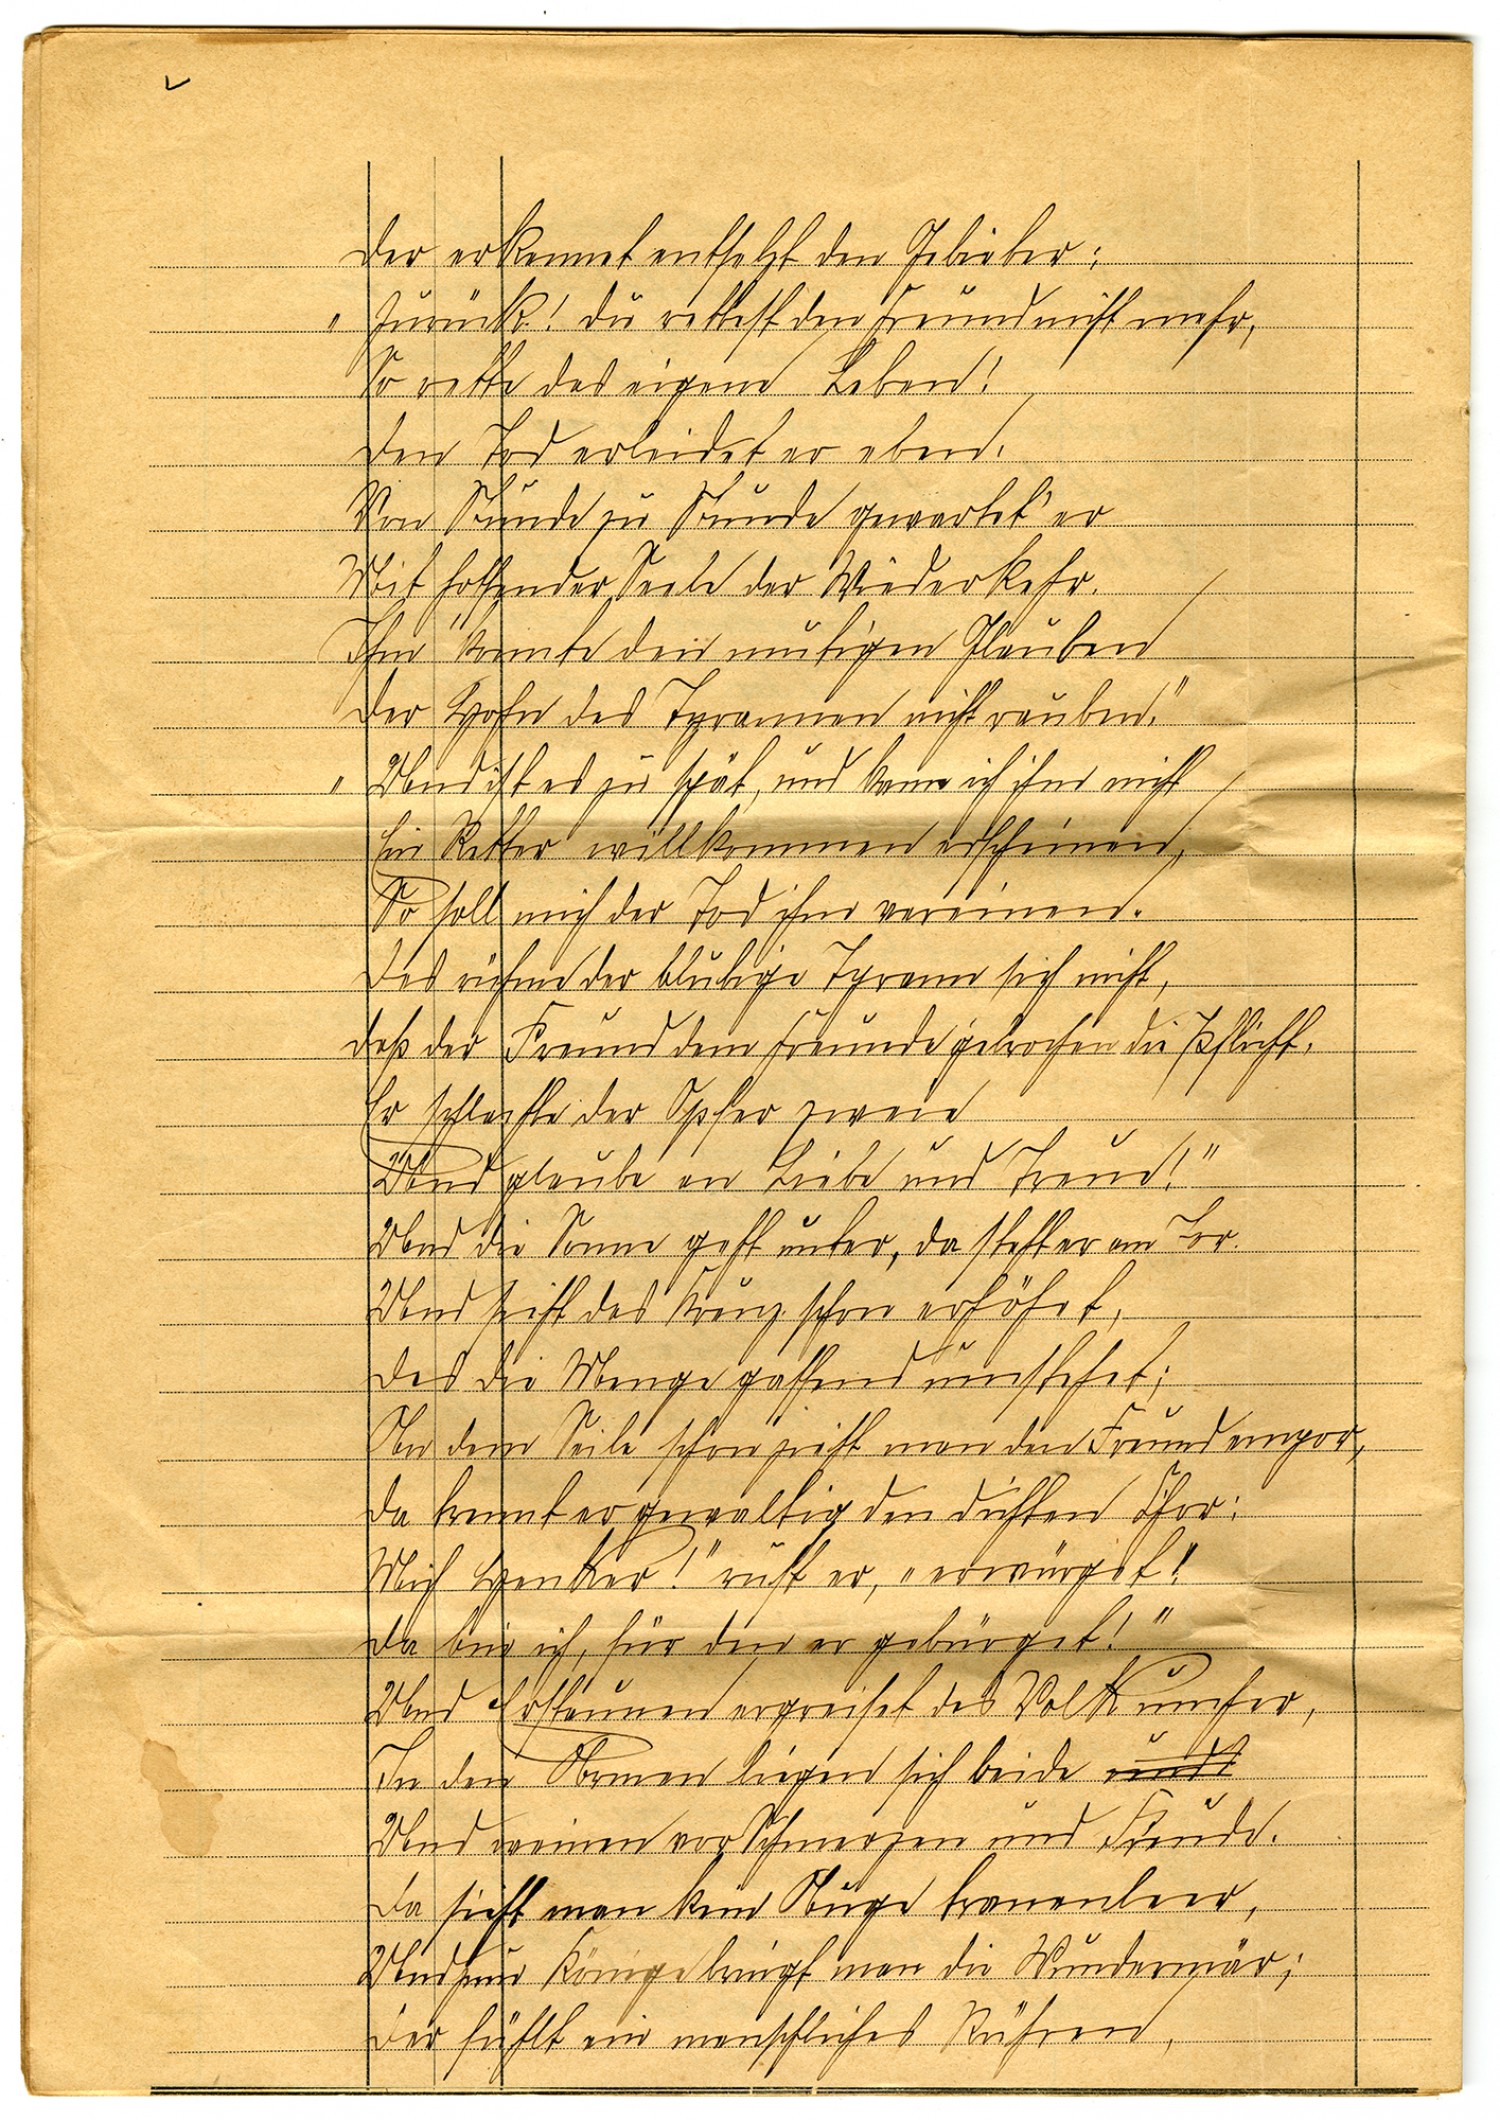 Der erkennet entsetzt den Gebieter:
„Zurück! Du rettest den Freund nicht mehr,
So rette das eigene Leben!
Den Tod erleidet er eben.
Von Stunde zu Stunde gewartet' er
Mit hoffender Seele der Wiederkehr.
Ihm konnte den mutigen Glauben
Der Hohn des Tyrannen nicht rauben."
„Und ist es zu spät, und kann ich ihm nicht
Ein Retter willkommen erscheinen,
So soll mich der Tod ihm vereinen.
Des rühme der blutige Tyrann sich nicht,
Daß der Freund dem Freunde gebrochen die Pflicht.
Er schlachte der Opfer zweie
Und glaube an Liebe und Treue!"
Und die Sonne geht unter, da steht er am Tor.
Und sieht das Kreuz schon erhöhet,
Das die Menge gaffend umstehet;
An dem Seile schon zieht man den Freund empor,
Da trennt er gewaltig den dichten Chor:
Mich Henker!" ruft er, „erwürget!
Da bin ich, für den er gebürget!"
Und Erstaunen ergreifet das Volk umher,
In den Armen liegen sich beide und
Und weinen vor Schmerzen und Freude.
Da sieht man kein Auge tranenleer,
Und zum Könige bringt man die Wundermär;
Der fühlt ein menschliches Rühren,